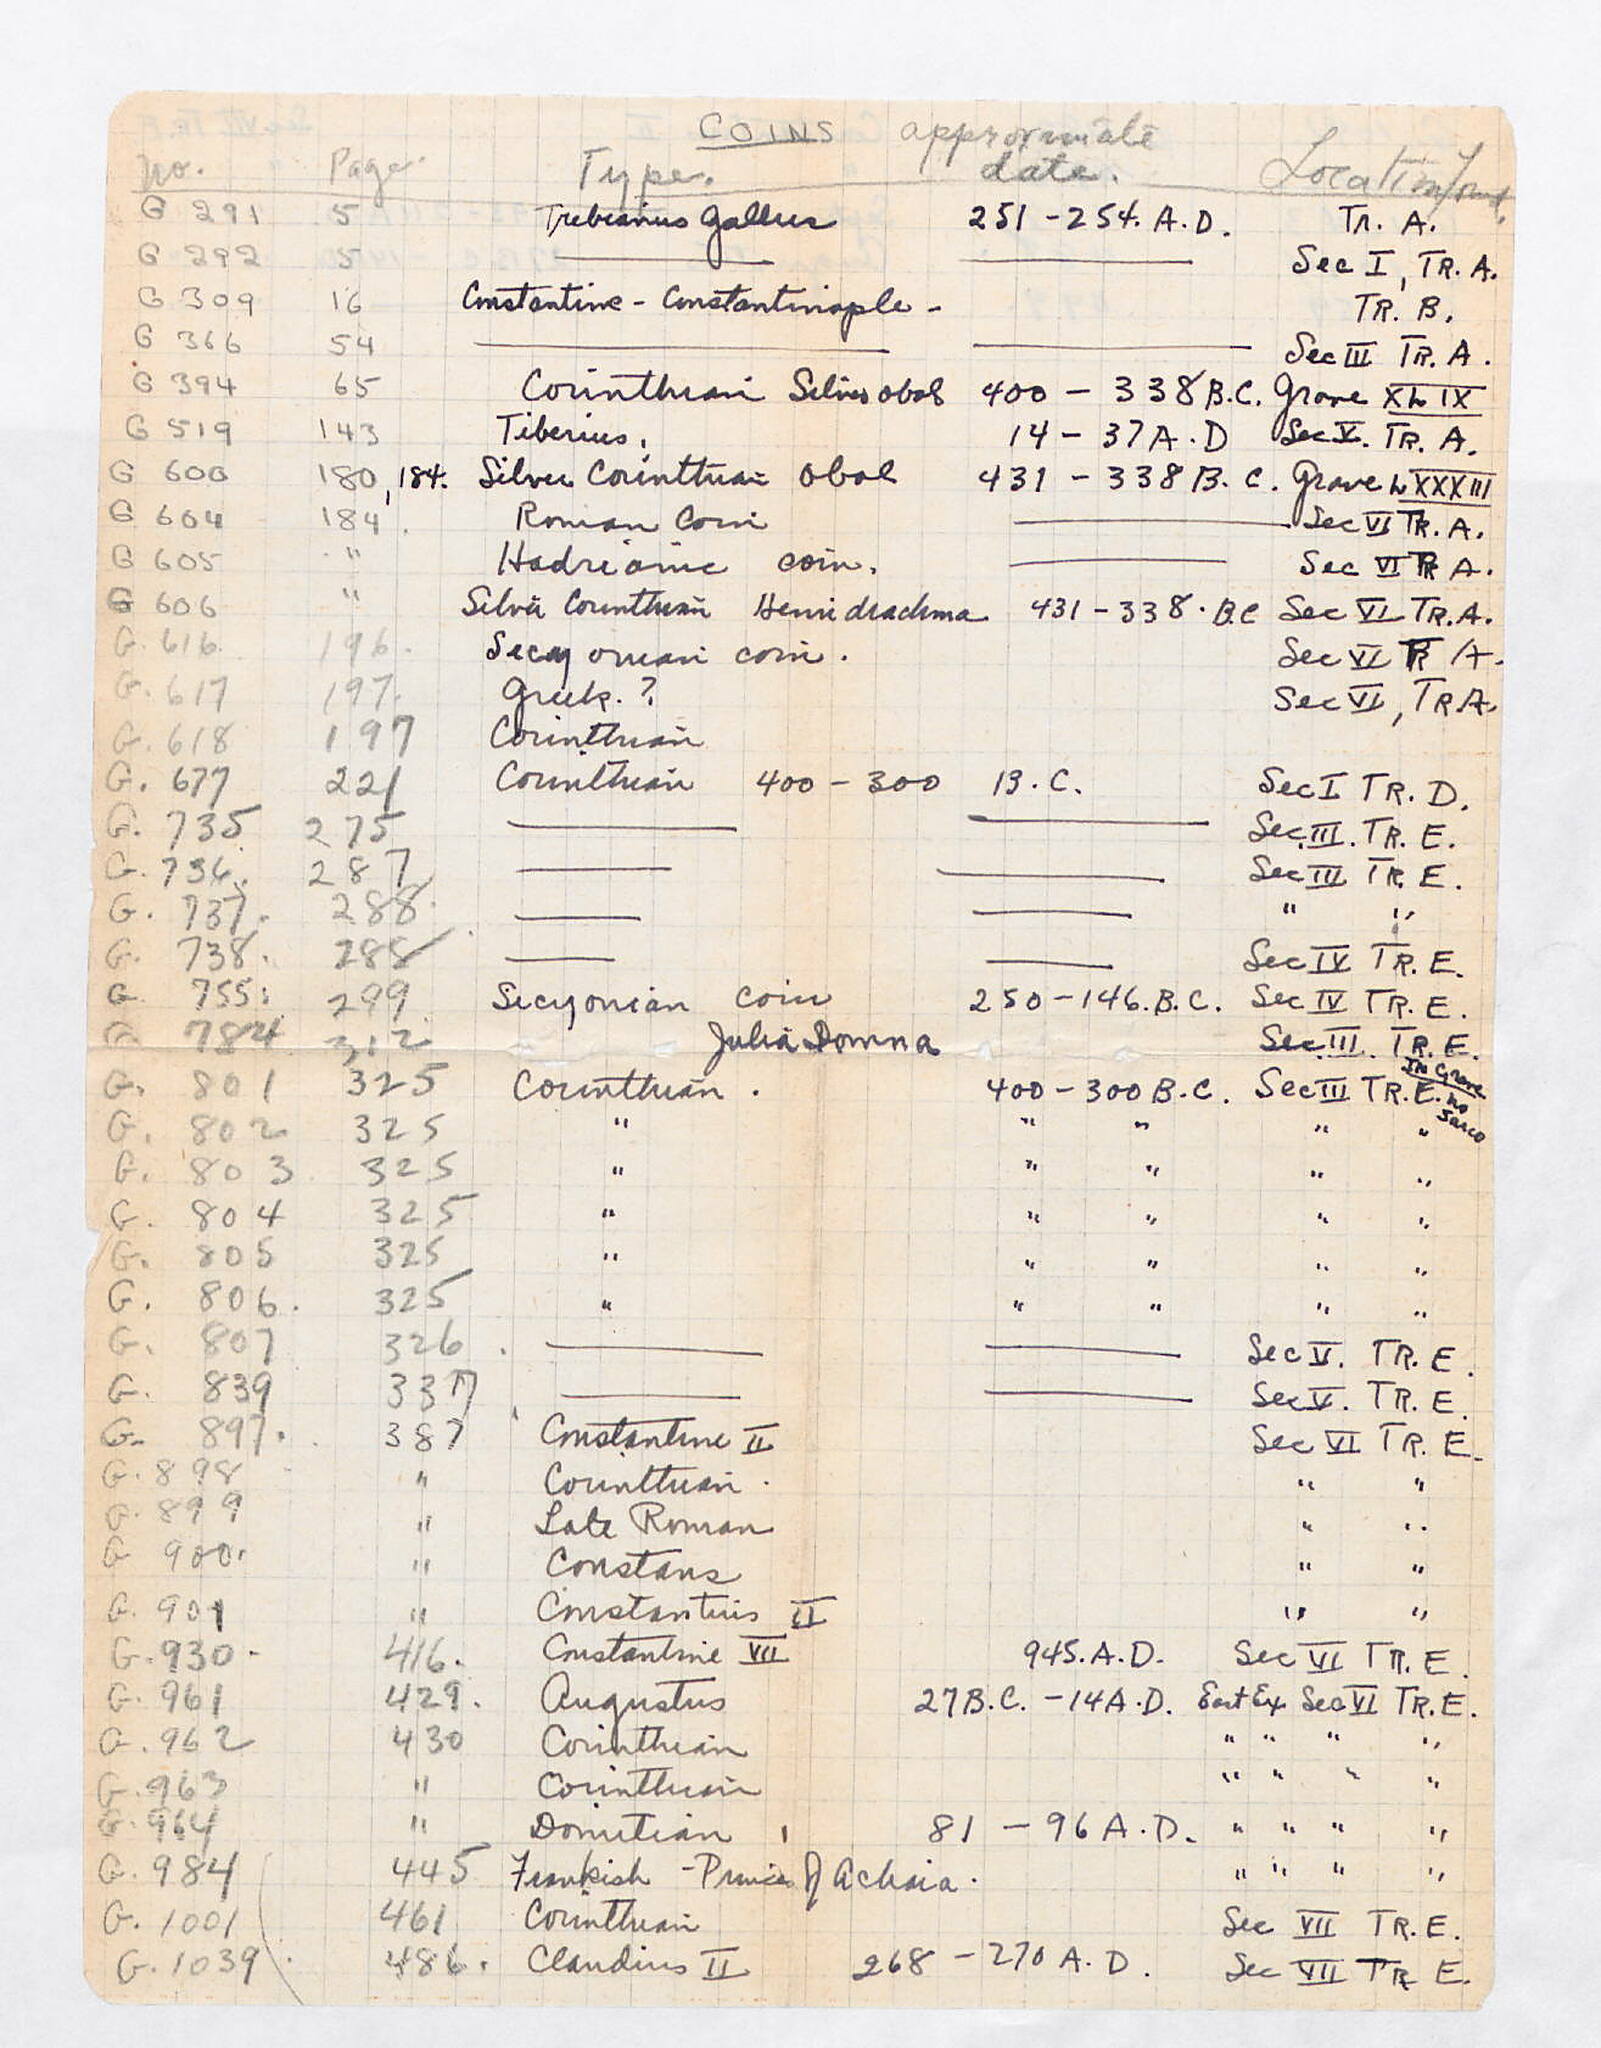 COINS approximate
No. Page. Type. date. Location found.
G 291 5 Trebianus Gallus 251 - 254. A.D. TR. A.
G 292 5 —— —— Sec I, TR. A.
G 309 16 Constantine - Constantinople - TR. B.
G 366 54 —— —— Sec III TR. A.
G 394 65 Corinthian Silver obol 400 - 338 B.C. Grave XLIX
G 519 143 Tiberius. 14 - 37 A.D Sec V. TR. A.
G 600 180, 184. Silver Corinthian obol 431 - 338 B.C. Grave LXXXIII
G 604 184. Roman Coin —— Sec VI TR. A.
G 605 " Hadrianic coin. —— Sec VI TR A.
G 606 " Silver Corinthian Hemidrachma 431 - 338. B.C Sec VI TR. A.
G. 616. 196. Secyonian coin. Sec VI TR A.
G. 617 197. Greek. ? Sec VI, TR A.
G. 618 197 Corinthian
G. 677 221 Corinthian 400 - 300 B.C. Sec I TR. D.
G. 735 275 —— —— Sec III. TR. E.
G. 736. 287 —— —— Sec III TR. E.
G. 737. 288. —— —— " "
G. 738. 288 —— —— Sec IV TR. E.
G 755. 299 Secyonian coin 250 - 146. B.C. Sec IV TR. E.
G. 784 312 Julia Domna Sec III. TR. E.
G. 801 325 Corinthian. 400 - 300 B.C. Sec III TR. E. In Grave no sarco
G. 802 325 " " " " "
G. 803 325 " " " " "
G. 804 325 " " " " "
G. 805 325 " " " " "
G. 806. 325 " " " " "
G. 807 326. —— —— Sec V. TR. E.
G. 839 337 —— —— Sec V. TR. E.
G. 897. 387 Constantine II Sec VI TR. E.
G. 898 " Corinthian. " "
G. 899 " Late Roman " "
G 900. " Constans " "
G. 901 " Constantius II " "
G. 930. 416. Constantine VII 945. A.D. Sec VI TR. E.
G. 961 429. Augustus 27 B.C. - 14 A.D. East Ex Sec VI TR. E.
G. 962 430 Corinthian " " " "
G. 963 " Corinthian " " " "
G. 964 " Domitian 81 - 96 A.D. " " " "
G. 984 445 Frankish - Princes of Achaia. " " " "
G. 1001 461 Corinthian Sec VII TR. E.
G. 1039. 486. Claudius II 268 - 270 A.D. Sec VII TR E.